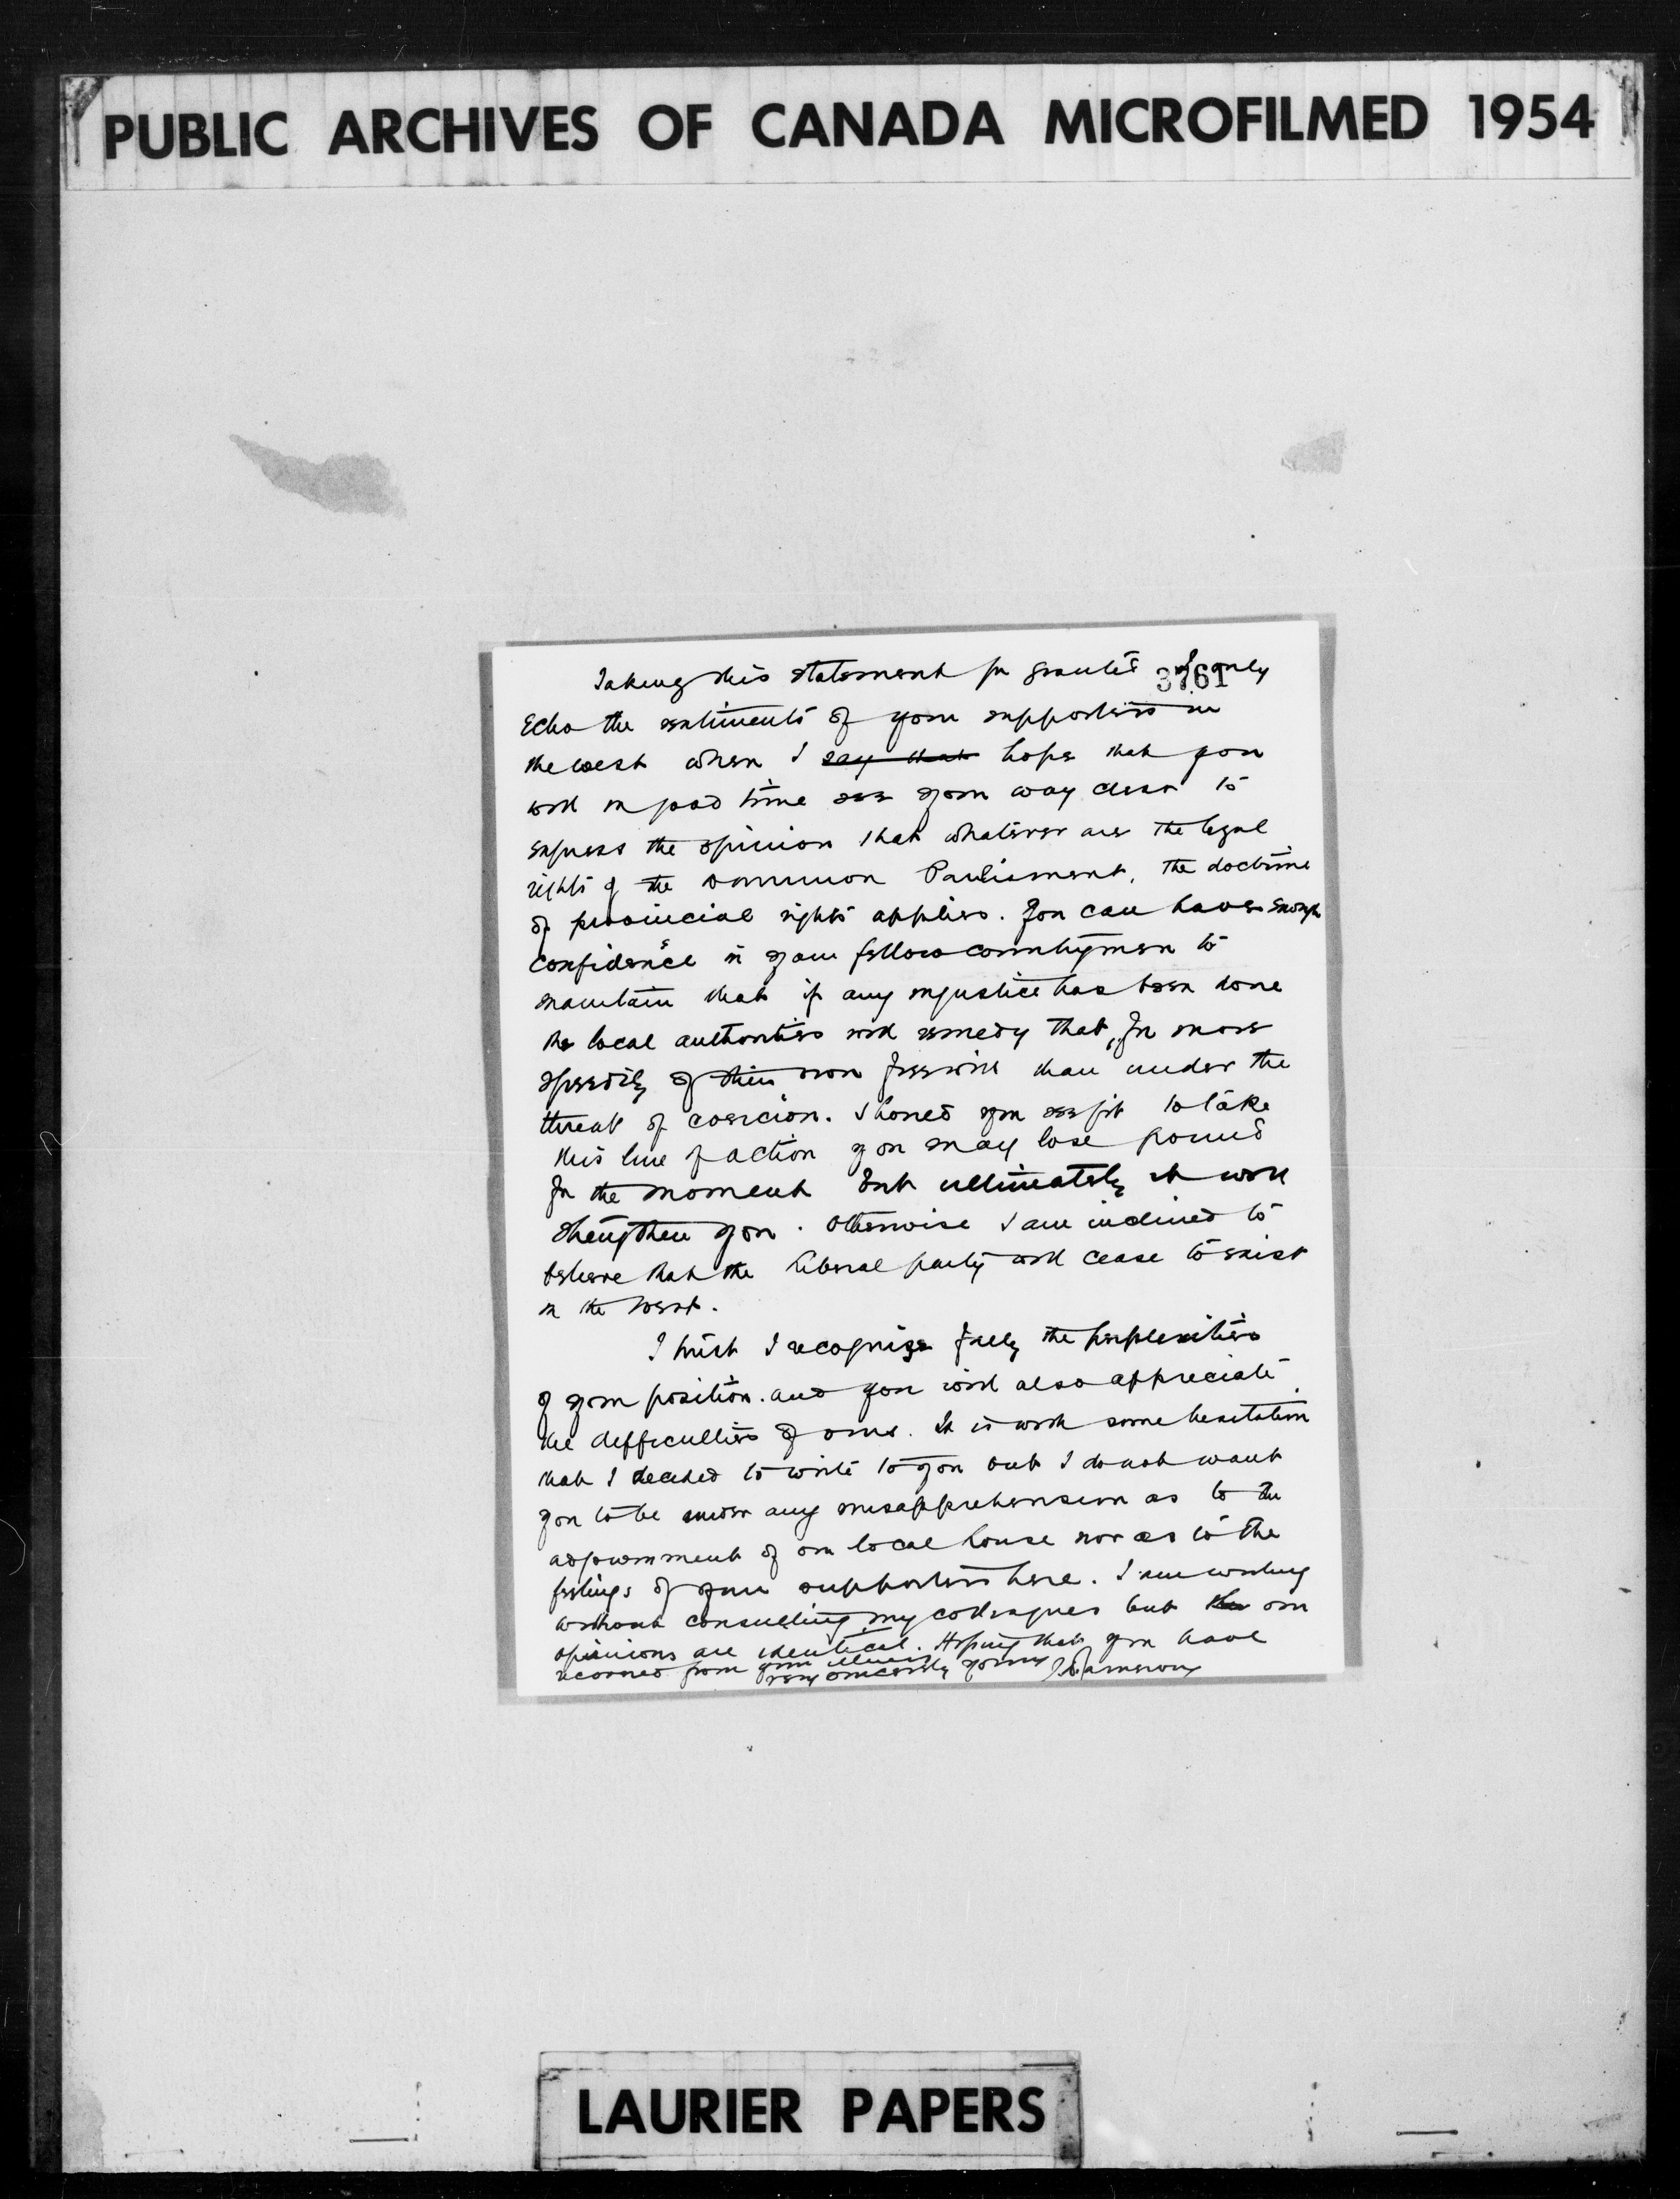 PUBLIC ARCHIVES OF CANADA MICROFILMED 1954
3761
Taking this statement for granted I only
Echo the sentiments of your supporters in
the west when I say that hope that you
will in good time see your way clear to
express the opinion that whatever are the legal
rights of the Dominion Parliament, the doctrine
of provincial rights applies. You can have enough
confidence in your fellow countrymen to
maintain that if any injustice has been done
the local authorities will remedy that, far more
speedily of their own free will than under the
threat of coercion. Should you see fit to take
this line of action you may lose ground
for the moment but ultimately it will
strengthen you. Otherwise I am inclined to
believe that the Liberal party will cease to exist
in the West.
I trust I recognize fully the perplexities
of your position. and you will also appreciate
the difficulties of ours. It is with some hesitation
that I decided to write to you but I do not want
you to be under any misapprehension as to the
adjournment of our local house nor as to the
feelings of your supporters here. I am writing
without consulting my colleagues but the our
opinions are identical. Hoping that you have
recovered from your illness
very sincerely yours J D Cameron
LAURIER PAPERS